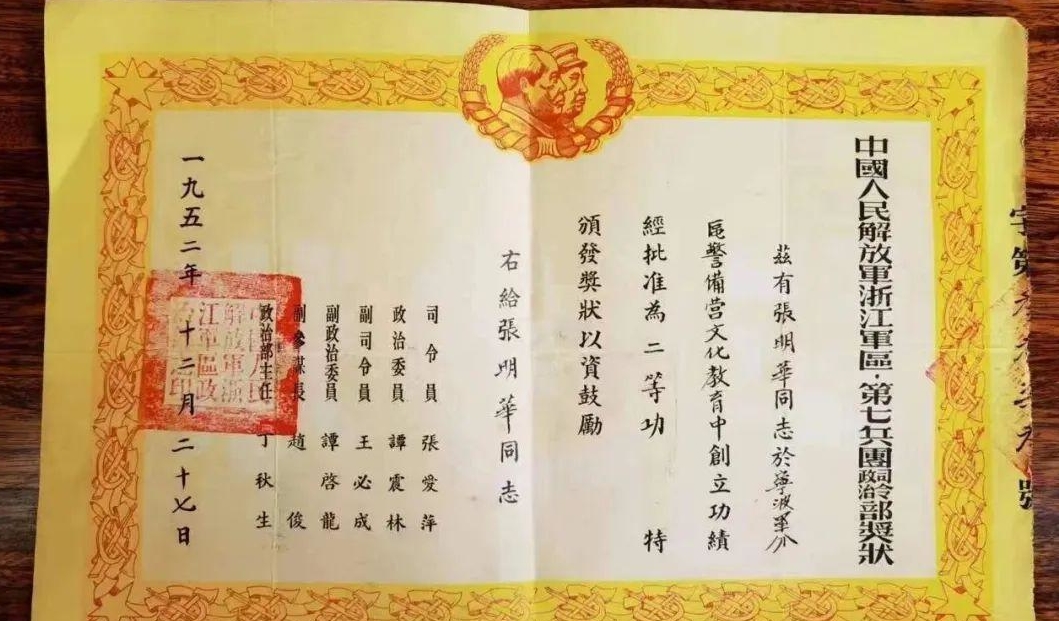 字第號
中國人民解放軍浙江軍區·第七兵團司令政治部獎狀
茲有張明華同志於寧波軍分
區警備營文化教育中創立功績
經批准為二等功 特
頒發獎狀以資鼓勵
右給張明華同志
司令員 張愛萍
政治委員 譚震林
副司令員 王必成
副政治委員 譚啓龍
副參謀長 趙俊
政治部主任 丁秋生
一九五二年十二月二十七日
解放軍浙
江軍區政